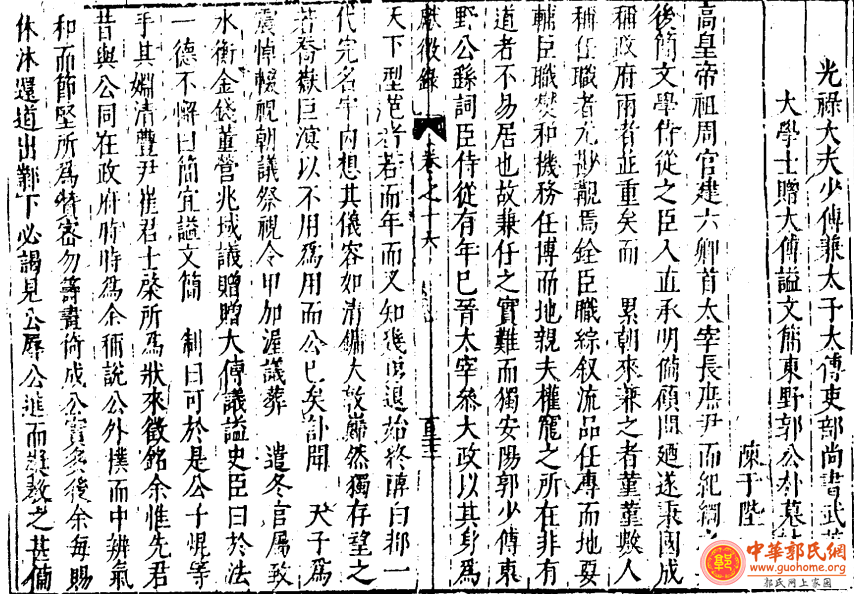 光祿大夫少傅兼太子太傅吏部尚書武英
大學士贈大傅謚文簡東野郭公朴墓
陳于陛
高皇帝祖周官建六卿首太宰長庶尹而紀綱
後簡文學侍從之臣入直承明備顧問廼遂秉國成
稱政府兩者並重矣而 累朝來兼之者菫菫數人
稱任職者尤尠觀焉銓臣職綜叙流品任專而地要
輔臣職燮和機務任博而地親夫權寵之所在非有
道者不易居也故兼任之實難而獨安陽郭少傅東
獻徵錄 卷之十六 百三
野公繇詞臣侍從有年已晉太宰叅大政以其身爲
天下型范者若而年而又知幾勇退始終醇白都一
代完名宇內想其儀容如清鏞大敦巋然獨存望之
若喬嶽巨瀛以不用爲用而公已矣訃聞 天子爲
震悼輟視朝議祭視令甲加渥議葬 遣冬官屬致
水衡金錢董營兆域議贈贈大傅議謚史臣曰於法
一德不懈曰簡宜謚文簡 制曰可於是公子怩等
手其婣清豐尹崔君士棨所爲狀來徵銘余惟先君
昔與公同在政府時時爲余稱說公外樸而中辨氣
和而節堅所爲贊密勿籌畫倚成公實多後余每賜
休沐還道出鄴下必謁見公辱公進而奬教之甚備
中華郭氏網
www.guohome.org
郭氏网上家園